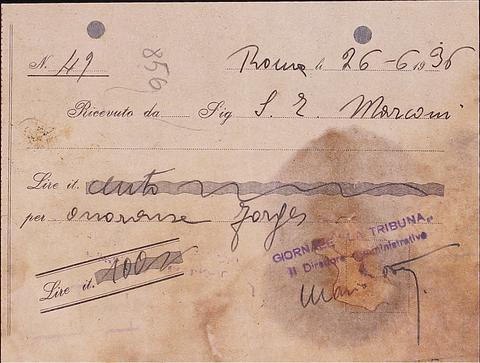 N. 49
856
Roma li 26-6 1936
Ricevuto da Sig S. E. Marconi
Lire it. cento
per onoranze Forges
GIORNALE "LA TRIBUNA"
Il Direttore Amministrativo
Lire it. 100
Mario